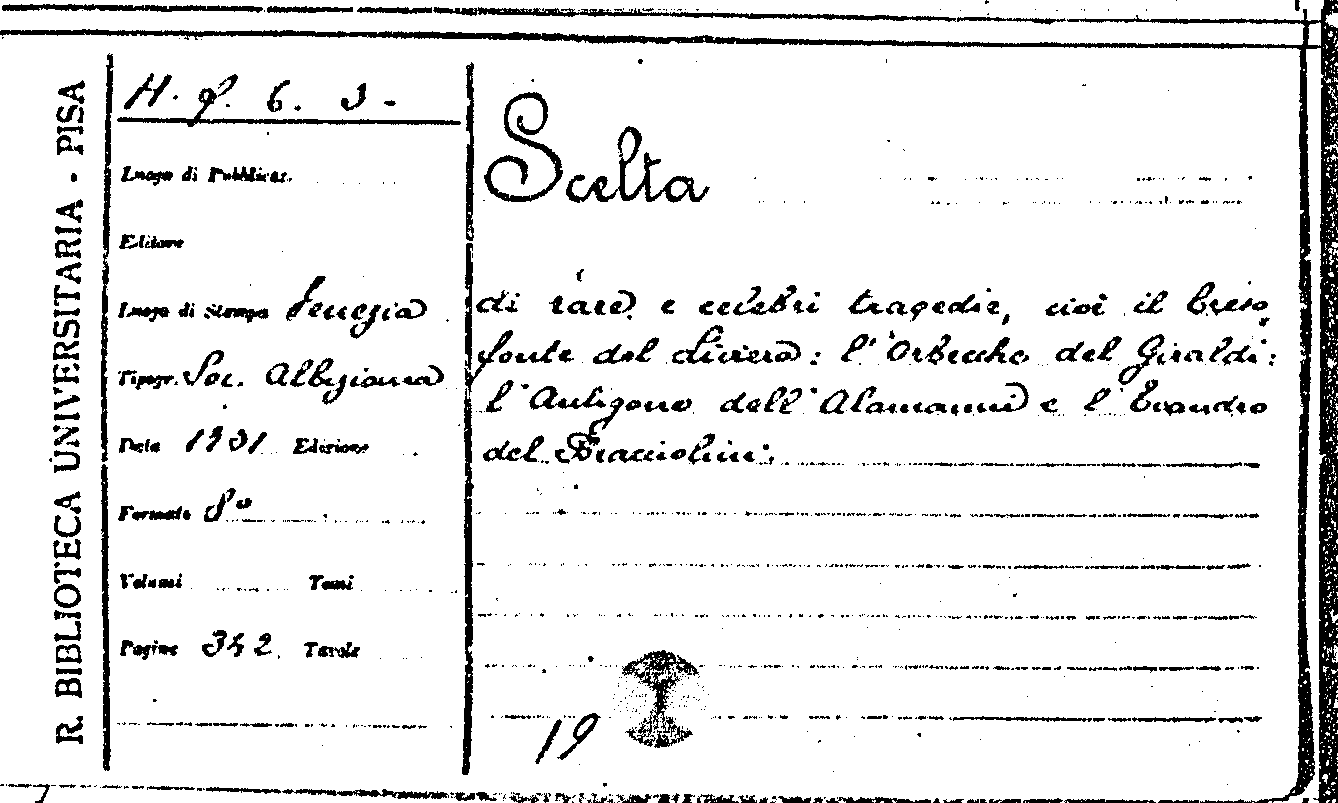 R. BIBLIOTECA UNIVERSITARIA - PISA
H. q. 6. 3.
Luogo di Pubblicaz.
Editore
Luogo di Stampa Venezia
Tipogr. Soc. Albriziana
Data 1731 Edizione
Formato 8º
Volumi Tomi
Pagine 342 Tavole
Scelta
di rare e celebri tragedie, cioè il Creso
fonte del Liviera: l'Orbecche del Giraldi:
l'Antigone dell'Alamanni e l'Evandro
del Bracciolini.
19